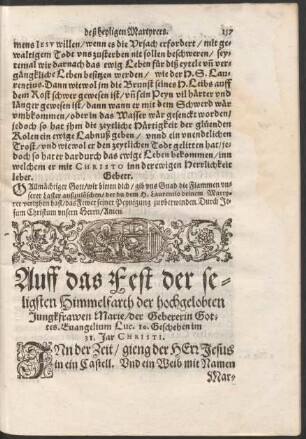 deß heyligen Martyrers. 137
mens Iesv willen/ wenn es die Vrsach erfordert / mit ge-
waltigem Todt vns zusterben nit sollen beschweren/ sey-
temal wir darnach das ewig Leben für diß eytele vñ ver-
gängkliche Leben besitzen werden / wie der H. S. Lau-
rentius. Dann wiewol im die Brunst seines H. Leibs auff
dem Rost schwer gewesen ist / vñ sein Peyn vil härter vnd
länger gewesen ist/ dann wann er mit dem Schwerd wär
vmbkommen/ oder in das Wasser wär gesenckt worden/
jedoch so hat jhm die zeytliche Härtigkeit der glünnden
Kolen ein ewige Labnuß geben / vnnd ein vnendtlichen
Trost/ vnd wiewol er den zeytlichen Todt gelitten hat/ je-
doch so hat er dardurch das ewige Leben bekommen / inn
welchem er mit CHRISTO inn der ewigen Herrlichkeit
lebet.
Gebett.
O Allmächtiger Gott/ wir bitten dich / gib vns Gnad die Flammen vn-
serer Laster außzulöschen/ der du dem H. Laurentio deinem Marty-
rer verlyhen hast/ das Fewer seiner Peynigung zuüberwinden. Durch Je-
sum Christum vnsern Herrn/ Amen.
Auff das Fest der se-
ligsten Himmelfarth der hochgelobten
Jungkfrawen Marie/ der Gebererin Got-
tes. Euangelium Luc. 10. Geschehen im
31. Jar CHRISTI.
IN der Zeit / gieng der HErr Jesus
in ein Castell. Vnd ein Weib mit Namen
Mar-